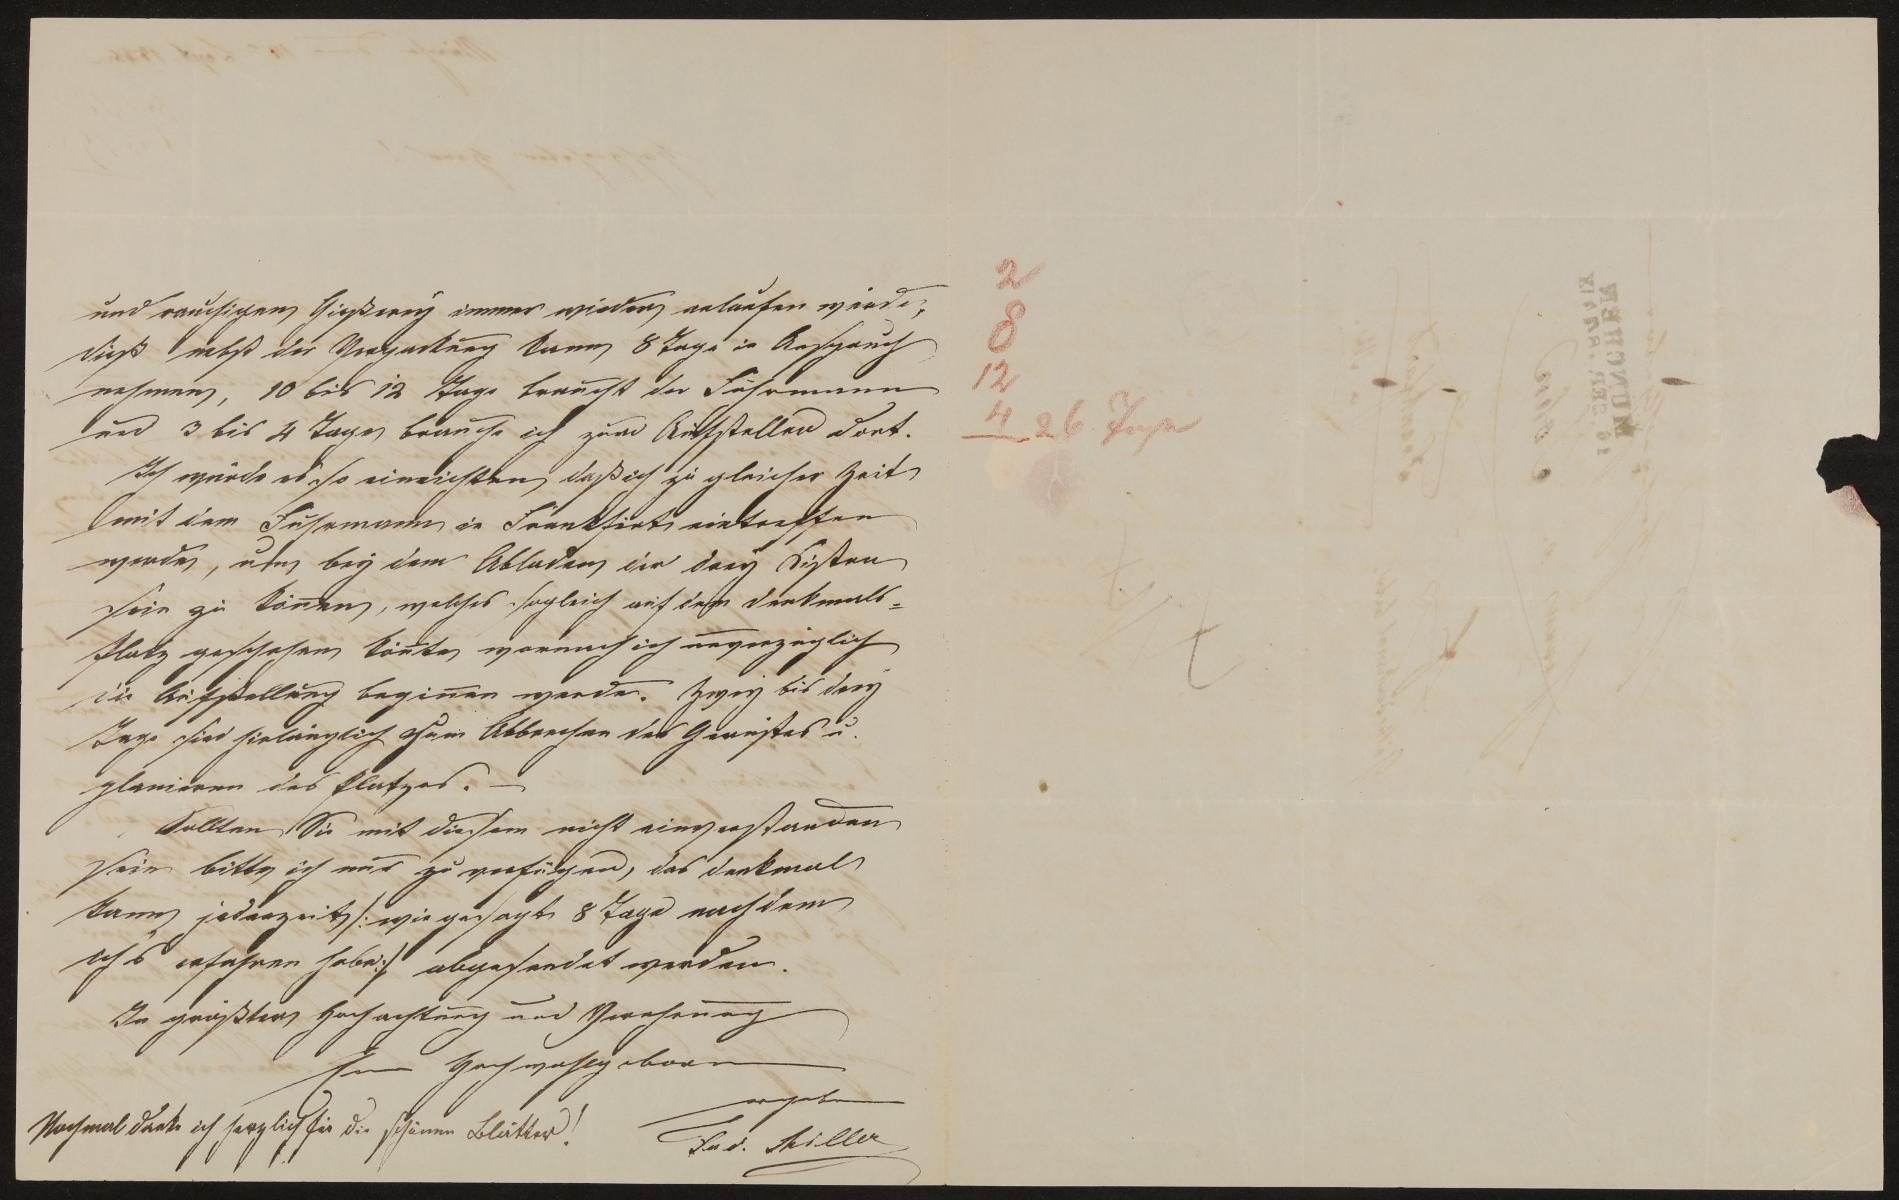 und rauchigen Gießerey immer wieder anlaufen würde;
dieß nebst der Verpackung kann 8 Tage in Anspruch
nehmen, 10 bis 12 Tage braucht der Fuhrmann
und 3 bis 4 Tage brauche ich zum Aufstellen dort.
Ich würde es so einrichten, daß ich zu gleicher Zeit
mit dem Fuhrmann in Frankfurt eintreffen
werde, um bey dem Abladen der drey Kisten
sein zu können, welches sogleich auf dem Denkmals=
platz geschehen könnte wornach ich unverzüglich
die Aufstellung beginnen werde. Zwey bis drey
Tage sind hinlänglich zum Abbrechen des Gerüstes u.
planieren des Platzes. —
Sollten Sie mit diesem nicht einverstanden
sein bitte ich nur zu verfügen, das Denkmal
kann jederzeit /: wie gesagt 8 Tage nachdem
ich's erfahren habe :/ abgesendet werden.
In größter Hochachtung und Verehrung
Euer Hochwohlgeboren
ergebener
Fer. Miller
Nochmal danke ich herzlich für die schönen Blätter!
2
8
12
4 26 Tage
MÜNCHEN